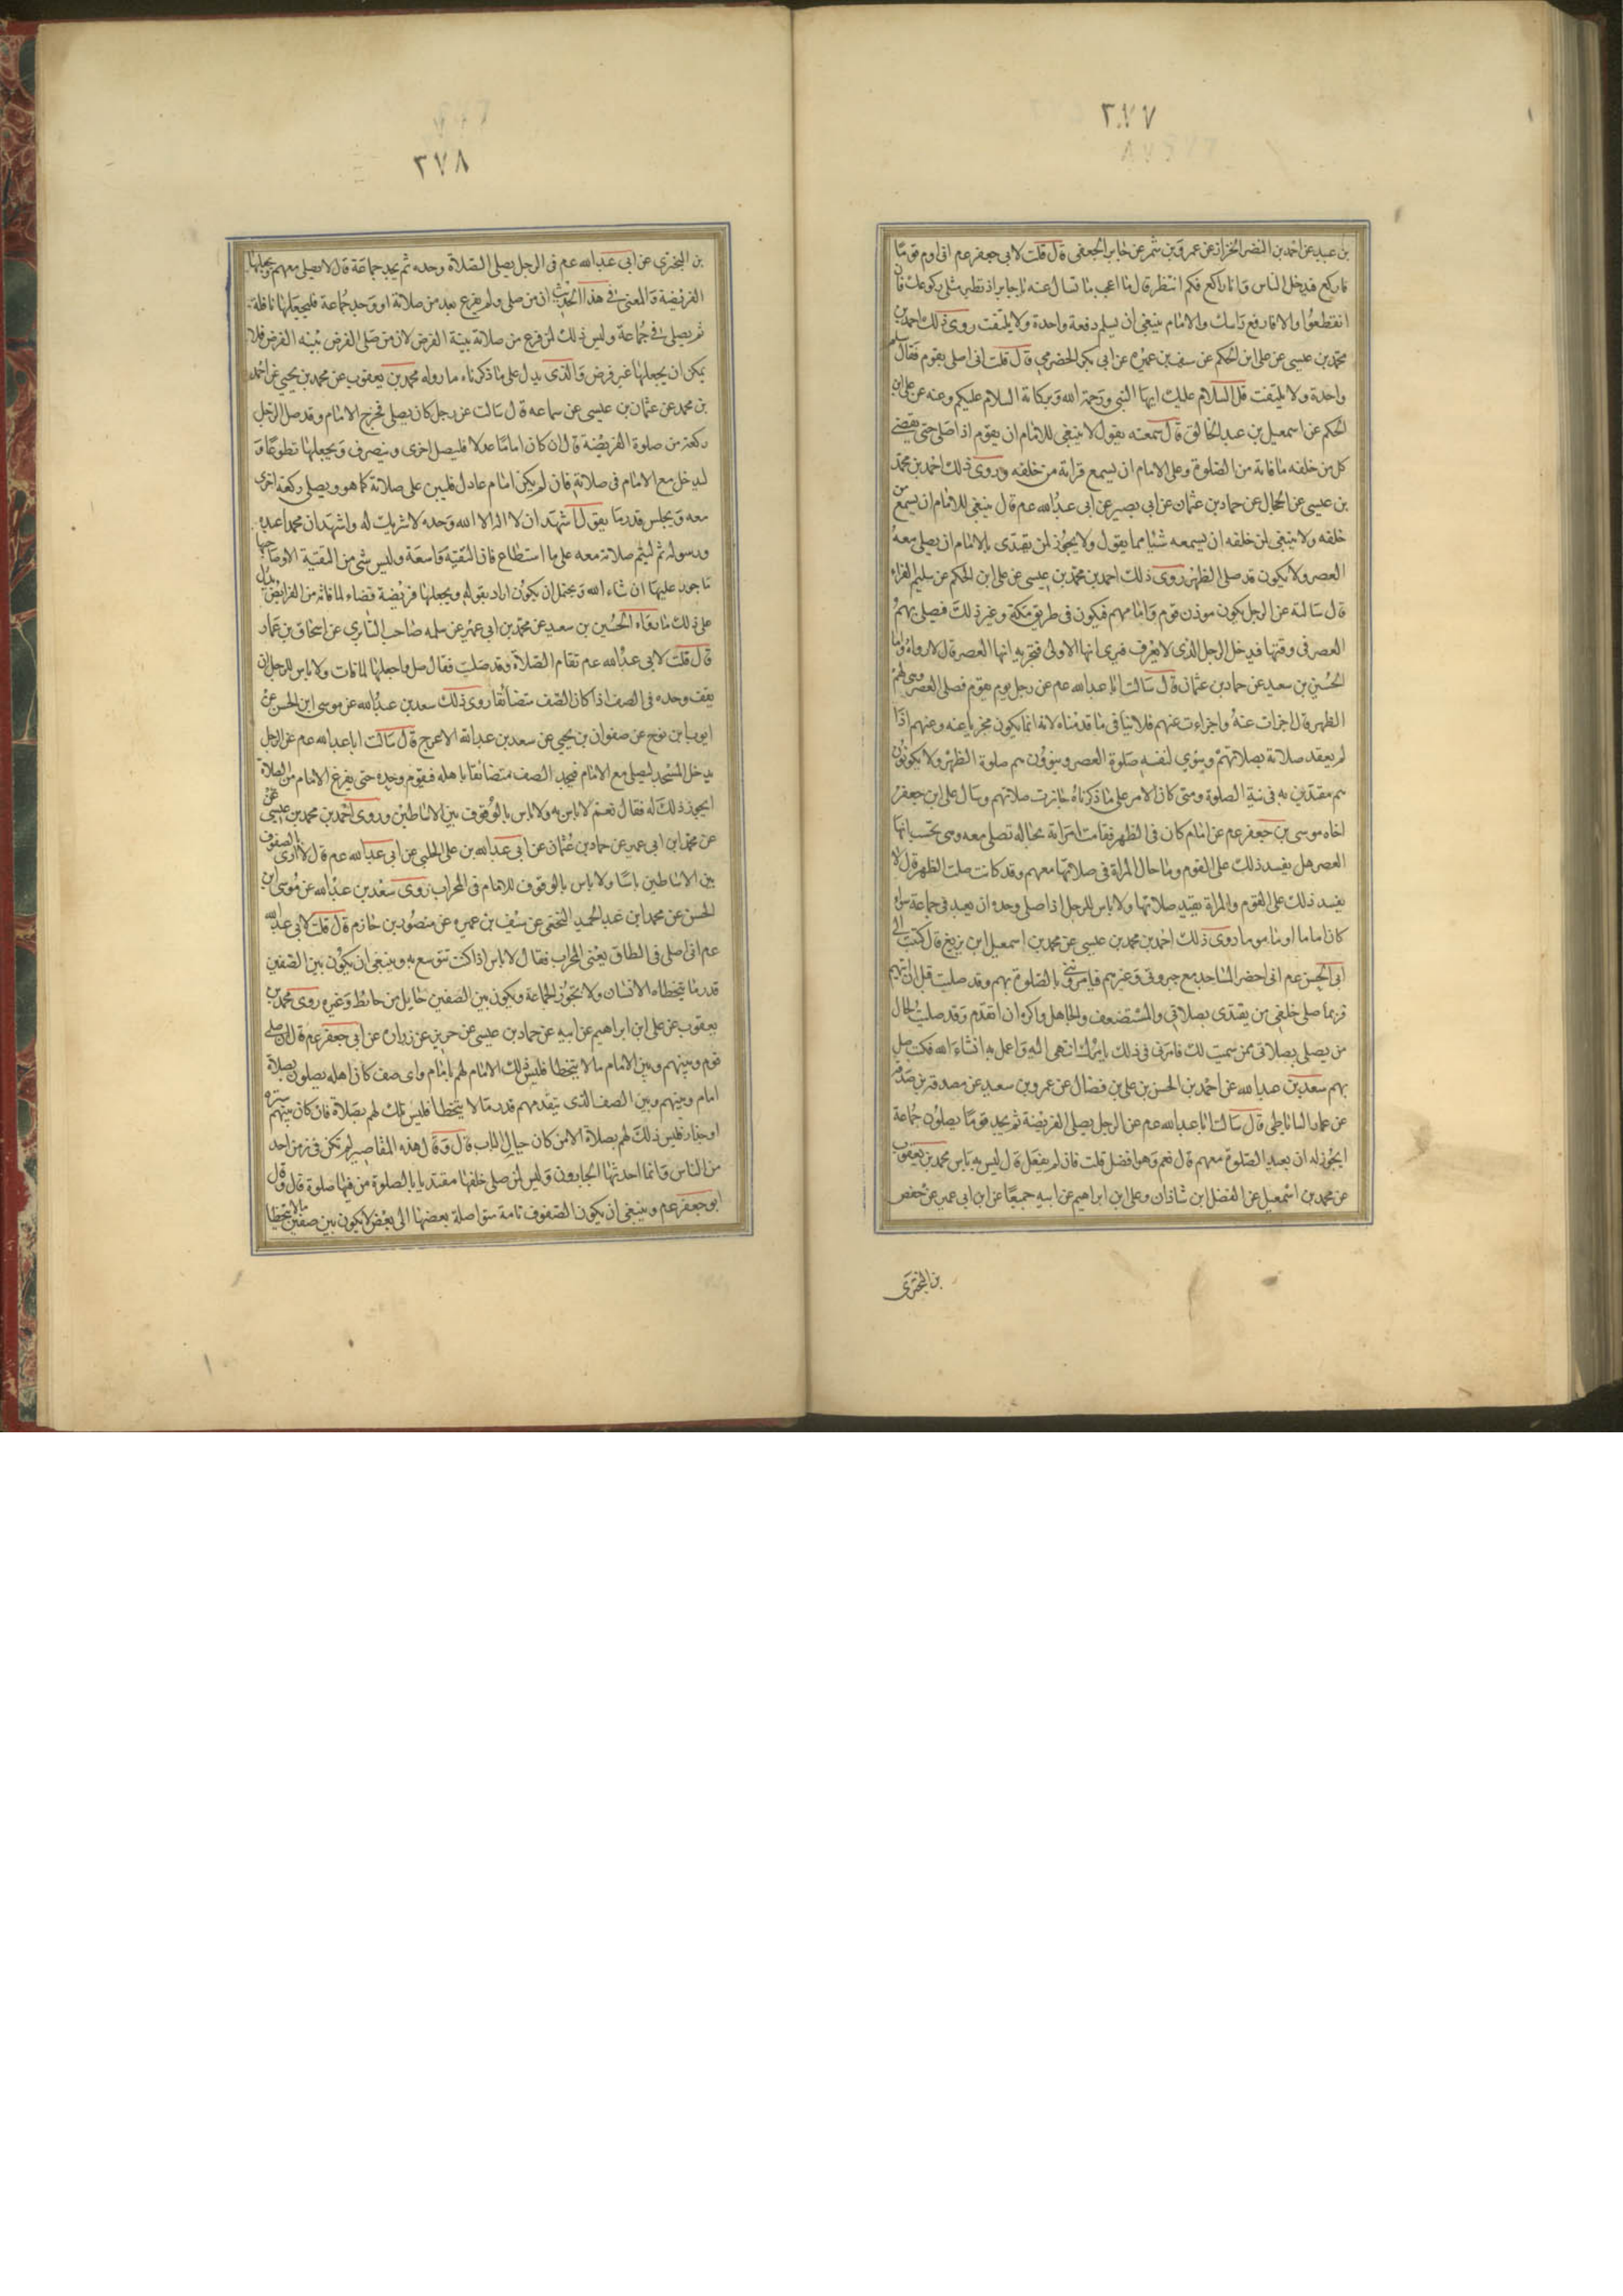 ٢٧٧
بن عبيد عن احمد بن النضر الخزاز عن عمرو بن شمر عن جابر الجعفى قال قلت لابى جعفر عم انى اوم قوما
فاركع فيدخل الناس وانا راكع فكم انتظر قال ما اعجب ما تسال عنه يا جابر انتظر مثلى ركوعك فان
انقطعوا والا فارفع راسك والامام ينبغى ان يسلم دفعة واحدة ولا يلتفت روى ذلك احمد بن
محمد بن عيسى عن على ابن الحكم عن سيف بن عميره عن ابى بكر الحضرمى قال قلت انى اصلى بقوم فقال سلم
واحدة ولا يلتفت قل السلام عليك ايها النبى ورحمة الله وبركاته السلام عليكم وعنه عن على ابن
الحكم عن اسمعيل بن عبد الخالق قال سمعته يقول لا ينبغى للامام ان يقوم اذا صلى حتى يقضى
كل من خلفه ما فاته من الصلوة وعلى الامام ان يسمع قراته من خلفه وروى ذلك احمد بن محمد
بن عيسى عن الحجال عن حماد بن عثمان عن ابى بصير عن ابى عبد الله عم قال ينبغى للامام ان يسمع من
خلفه ولا ينبغى لمن خلفه ان يسمعه شيئا مما يقول ولا يجوز لمن يقتدى بالامام ان يصلى معه
العصر ولا يكون قد صلى الظهر روى ذلك احمد بن محمد بن عيسى عن على ابن الحكم عن سليم الفراء
قال سالته عن الرجل يكون موذن قوم وامامهم فيكون فى طريق مكة وغير ذلك فيصلى بهم
العصر فى وقتها فيدخل الرجل الذى لا يعرف فيرى انها الاولى فتجزيه انها العصر قال لا رواه واما
الحسين بن سعيد عن حماد بن عثمان قال سالت ابا عبد الله عم عن رجل يوم بقوم فصلى العصر وهى لهم
الظهر قال اجزات عنه واجزات عنهم فلا ينافى ما قدمناه لانه انما يكون مجزيا عنه وعنهم اذا
لم يعقد صلاته بصلاتهم وينوى لنفسه صلوة العصر وينوون هم صلوة الظهر ولا يكونون
هم مقتدين به فى نية الصلوة ومتى كان الامر على ما ذكرناه جازت صلاتهم وسال على ابن جعفر
اخاه موسى بن جعفر عم عن امام كان فى الظهر فقامت امراته بحياله تصلى معه وهى تحسب انها
العصر هل يفسد ذلك على القوم وما حال المراة فى صلاتها معهم وقد كانت صلت الظهر قال لا
يفسد ذلك على القوم والمراة تعيد صلاتها ولا باس للرجل اذا صلى وحده ان يعيد فى جماعة سواء
كان اماما او ماموما روى ذلك احمد بن محمد بن عيسى عن محمد بن اسمعيل ابن بزيع قال كتبت الى
ابى الحسن عم انى احضر المساجد مع جيرتى وغيرهم فيامروننى بالصلوة بهم وقد صليت قبل ان اتيهم
فربما صلى خلفى من يقتدى بصلاتى والمستضعف والجاهل واكره ان اتقدم وقد صليت لحال
من يصلى بصلاتى ممن سميت لك فامرنى فى ذلك بامرك انتهى اليه واعمل به انشاء الله فكتب صل
بهم سعد بن عبد الله عن احمد بن الحسن بن على بن فضال عن عمرو بن سعيد عن مصدق بن صدقه
عن عمار الساباطى قال سالت ابا عبد الله عم عن الرجل يصلى الفريضة ثم يجد قوما يصلون جماعة
ايجوز له ان يعيد الصلوة معهم قال نعم وهو افضل قلت فان لم يفعل قال ليس به باس محمد بن يعقوب
عن محمد بن اسمعيل عن الفضل ابن شاذان وعلى ابن ابراهيم عن ابيه جميعا عن ابن ابى عمير عن حفص
بن البخترى
٢٧٨
بن البخترى عن ابى عبد الله عم فى الرجل يصلى الصلاة وحده ثم يجد جماعة قال يصلى معهم ويجعلها
الفريضة والمعنى فى هذا الحديث ان من صلى ولم يفرغ بعد من صلاته او وجد جماعة فليجعلها نافلة
ثم يصلى فى جماعة وليس ذلك لمن فرغ من صلاته بنية الفرض لان من صلى الفرض بنيه الفرض فلا
يمكن ان يجعلها غير فرض والذى يدل على ما ذكرناه ما رواه محمد بن يعقوب عن محمد بن يحيى عن احمد
بن محمد عن عثمان بن عيسى عن سماعه قال سالت عن رجل كان يصلى فخرج الامام وقد صلى الرجل
ركعة من صلوة الفريضة قال ان كان اماما عدلا فليصل اخرى وينصرف ويجعلها تطوعا و
ليدخل مع الامام فى صلاته فان لم يكن امام عادل فليبن على صلاته كما هو ويصلى ركعة اخرى
معه ويجلس قدر ما يقول اشهد ان لا اله الا الله وحده لا شريك له واشهد ان محمدا عبده
ورسوله ثم ليتم صلاته معه على ما استطاع فان التقية واسعة وليس شى من التقية الا وصاحبها
ماجور عليها ان شاء الله ويحتمل ان يكون اراد بقوله ويجعلها فريضة قضاء لما فاته من الفرايض يدل
على ذلك ما رواه الحسين بن سعيد عن محمد بن ابى عمير عن سلمه صاحب السابرى عن اسحاق بن عمار
قال قلت لابى عبد الله عم تقام الصلاة وقد صليت فقال صل واجعلها لما فات ولا باس للرجل ان
يقف وحده فى الصف اذا كان الصف متضايقا روى ذلك سعد بن عبد الله عن موسى ابن الحسن عن
ايوب ابن نوح عن صفوان بن يحيى عن سعد بن عبد الله الاعرج قال سالت ابا عبد الله عم عن الرجل
يدخل المسجد ليصلى مع الامام فيجد الصف متضايقا باهله فيقوم وحده حتى يفرغ الامام من الصلاة
ايجوز ذلك له فقال نعم لا باس به ولا باس بالوقوف بين الاساطين وروى احمد بن محمد بن عيسى عن
عن محمد ابن ابى عمير عن حماد بن عثمان عن ابى عبد الله بن على الحلبى عن ابى عبد الله عم قال لا ارى بالصفوف
بين الاساطين باسا ولا باس بالوقوف للامام فى المحراب روى سعد بن عبد الله عن موسى ابن
الحسن عن محمد ابن عبد الحميد النخعى عن سيف بن عميره عن منصور بن حازم قال قلت لابى عبد الله
عم انى اصلى فى الطاق يعنى المحراب فقال لا باس اذا كنت تتوسع به وينبغى ان يكون بين الصفين
قدر ما يتخطاه الانسان ولا يجوز الجماعة ويكون بين الصفين حايل من حائط وغيره روى محمد بن
يعقوب عن على ابن ابراهيم عن ابيه عن حماد بن عيسى عن حريز عن زراره عن ابى جعفر عم قال ان صلى
قوم وبينهم وبين الامام ما لا يتخطا فليس ذلك الامام لهم بامام واى صف كان اهله يصلون بصلاة
امام وبينهم وبين الصف الذى يتقدمهم قدر ما لا يتخطا فليس تلك لهم بصلاة فان كان بينهم ستره
او جدار فليس ذلك لهم بصلاة الا من كان حيال الباب قال وقال هذه المقاصير لم تكن فى زمن احد
من الناس وانما احدثها الجبارون وليس لمن صلى خلفها مقتديا بالصلوة من فيها صلوة قال وقال
ابو جعفر عم وينبغى ان يكون الصفوف تامة متواصلة بعضها الى بعض لا يكون بين صفين ما لا يتخطا